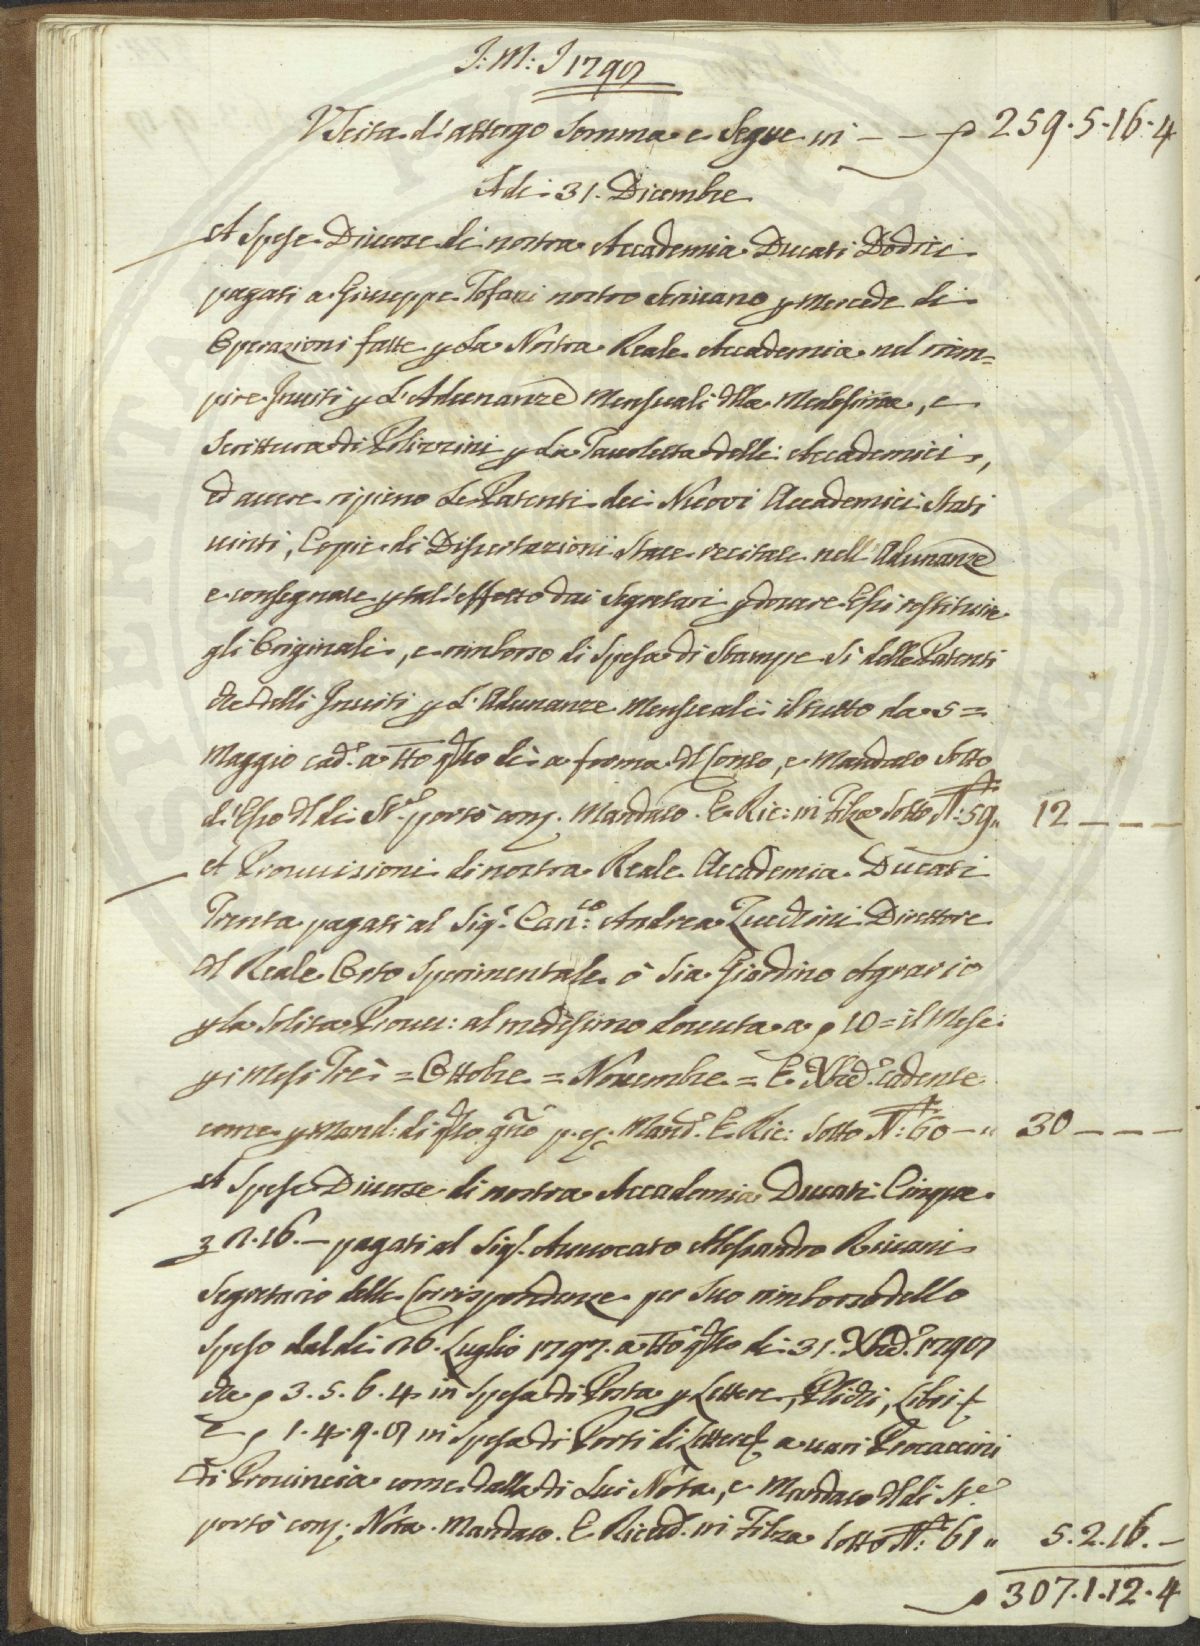 J: M: J 1797
Uscita di attergo Somma e Segue in — — 259.5.16.4
Adi 31. Dicembre
A Spese Diverse di nostra Accademia Ducati Dodici
pagati a Giuseppe Tofani nostro Scrivano p Mercede di
Operazioni fatte p La Nostra Reale Accademia nel riem=
pire Inviti p L'Adunanze Mensuali della Medesima, e
Scrittura di Polizzini p La Tavoletta delli Accademici,
ed avere ripieno Le Patenti dei Nuovi Accademici Stati
vinti, Copie di Dissertazioni State recitate nell'Adunanze
e consegnate p tal'effetto dai Segretari p dovere Essi restituire
gli Originali, e rimborso di Spesa di Stampe Si delle Patenti
che delli Inviti p L'Adunanze Mensuali il tutto da 5 =
Maggio cad.e a tto q.sto di a forma del Conto, e Mandato Sotto
di Esso del di S.e portò con. Mandato. E Ric: in Filza Sotto N: 59 " 12 — — —
A Provvisioni di nostra Reale Accademia Ducati
Trenta pagati al Sig.r Can.co Andrea Zucchini Direttore
del Reale Orto Sperimentale ò Sia Giardino Agrario
p la Solita Provv: al medesimo dovuta a 10 = il Mese
p i Mesi Trè = Ottobre = Novembre = E Xbre cadente
come p Mand: di q.sto gno p. Mand.o E Ric: Sotto N: 60 — " 30 — — —
A Spese Diverse di nostra Accademia Ducati Cinque
2.16. — pagati al Sig.r Avvocato Alessandro Rivani
Segretario delle Corrispondenze per Suo rimborso dello
Speso dal di 26. Luglio 1797. a tto q.sto di 31. Xbre 1797
da 3.5.6.4 in Spesa di Posta p Lettere, Plichi, Libri
E 1.4.9.8 in Spesa di Porti di Lettere a vari Procaccini
di Provincia come dalla di Lui Nota, e Mandato del di S.e
portò con: Nota. Mandato. E Ricev. in Filza Sotto N: 61 " 5.2.16. —
307.1.12.4